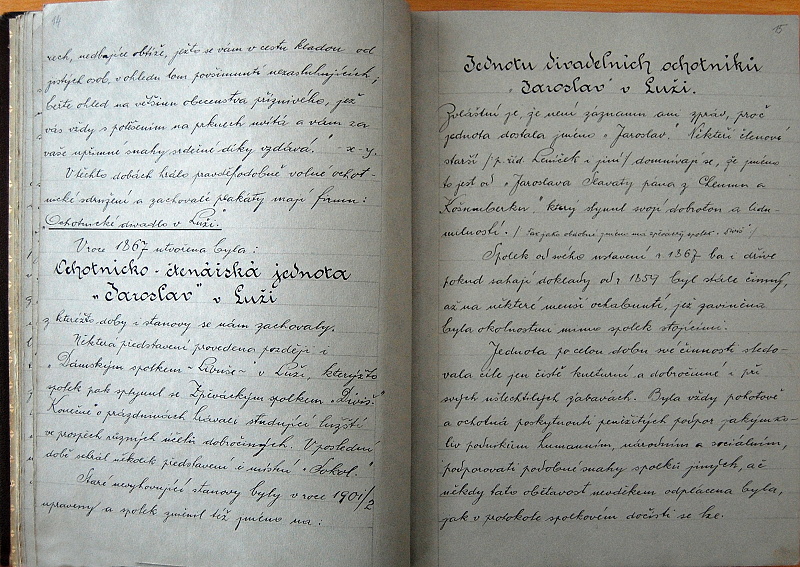 14
rech, nedbajíce obtíže, ježto se vám v cestu kladou od
jistých osob, v ohledu tom povšimnutí nezasluhujících;
beřte ohled na většinu obecenstva příznivého, jež
vás vždy s potěšením na prknech uvítá a vám za
vaše upřímné snahy srdečné díky vzdává." -x-y.
V těchto dobách hrálo pravděpodobně volné ochot-
nické sdružení a zachovalé plakáty mají firmu:
"Ochotnické divadlo v Luži."
V roce 1867 utvořena byla:
Ochotnicko-čtenářská jednota
"Jaroslav" v Luži
z kteréžto doby i stanovy se nám zachovaly.
Některá představení provedena později i
"Dámským spolkem - Libuše - v Luži, kterýžto
spolek pak splynul se Zpěváckým spolkem "Diviš."
Konečně o prázdninách hrávali studující lužští
ve prospěch různých účelů dobročinných. V poslední
době sehrál několik představení i místní "Sokol."
Staré nevyhovující stanovy byly v roce 1901/2
upraveny a spolek změnil též jméno na:
15
Jednotu divadelních ochotníků
"Jaroslav" v Luži.
Zvláštní je, že není záznamu ani zpráv, proč
jednota dostala jméno "Jaroslav." Někteří členové
starší /p. říd. Leníček i jiní/ domnívají se, že jméno
to jest od "Jaroslava Slavaty pána z Chlumu a
Košumberku," který slynul svojí dobrotou a lidu-
milností. /tak jako obdobně jméno má zpěvácký spolek "Diviš"/
Spolek od svého ustavení r. 1867 ba i dříve
pokud sahají doklady od r. 1859 byl stále činný,
až na některé menší ochabnutí, jež zaviněna
byla okolnostmi mimo spolek stojícími.
Jednota po celou dobu své činnosti sledo-
vala cíle jen čistě kulturní a dobročinné i při
svých ušlechtilých zábavách. Byla vždy pohotově
a ochotna poskytnouti peněžitých podpor jakýmko-
liv podnikům humanním, národním a sociálním,
podporovati podobné snahy spolků jiných, ač
někdy tato obětavost nevděkem odplácena byla,
jak v protokole spolkovém dočísti se lze.